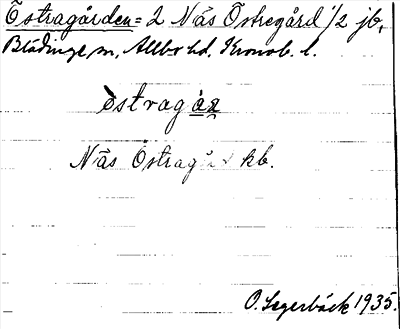 Östragården = 2 Näs Östregård 1/2 jb,
Blädinge sn, Allbo hd. Kronob. l.
östragáɹ
Näs Östragård kb.
O. Segerbäck 1935.